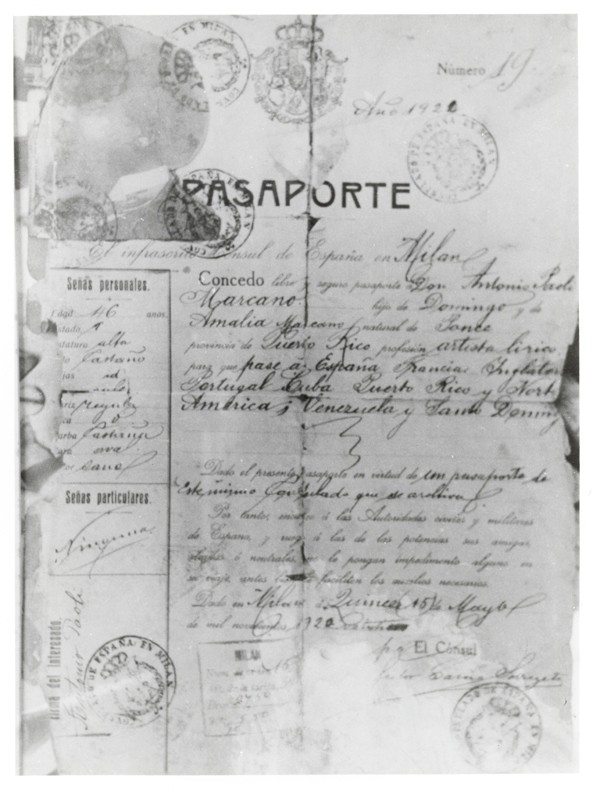 Número 19.
Año 1920
PASAPORTE
El infrascrito Cónsul de España en Milan
Concedo libre y seguro pasaporte a Don Antonio Paoli
Marcano hijo de Domingo y de
Amalia Marcano natural de Ponce
provincia de Puerto Rico profesión artista lírico
para que pase a España, Francia, Inglater
Portugal Cuba Puerto Rico y Norte
América; Venezuela y Santo Doming
Dado el presente pasaporte en virtud de un pasaporte de
este mismo Consulado que se archiva.
Por tanto, á las Autoridades civiles y militares
de España, y á las de las potencias sus amigas
ó neutrales, no le pongan impedimento alguno en
su viaje, antes faciliten los auxilios necesarios.
Dado en Milan á Quince 15 de Mayo
de mil novecientos 1920
El Cónsul
Señas personales.
46 anos.
alta
Castaño
id
regular
Castaña
oval
sano
Señas particulares.
Ninguna
Firma del interesado.
Antonio Paoli
CONSULADO DE ESPAÑA EN MILAN
MILAN